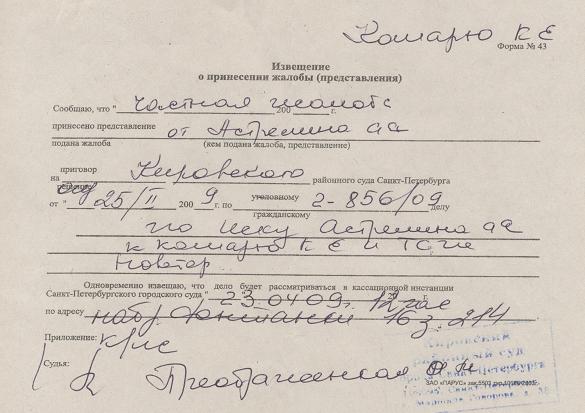 Комарю К Е
Форма № 43
Извещение
о принесении жалобы (представления)
Сообщаю, что " частная жалоба 200 г.
принесено представление от Астремина
подана жалоба (кем подана жалоба, представление)
приговор
на Кировского районного суда Санкт-Петербурга
решение
от " 25/II 200 9 г. по уголовному 2-856/09 делу
гражданскому
по иску Астремина
к Комарю К Е и
Новтор
Одновременно извещаю, что дело будет рассматриваться в кассационной инстанции
Санкт-Петербургского городского суда " 23 04 09 12 час
по адресу наб Фонтанки 16 з. 214
Приложение:
Судья: Преображенская
ЗАО «ПАРУС»
Кировский
районный суд
Санкт-Петербурга